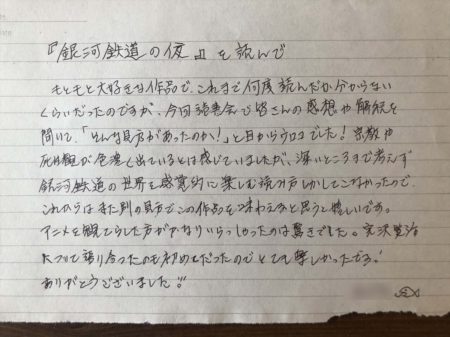 『銀河鉄道の夜』を読んで
もともと大好きな作品で、これまで何度読んだか分からない
くらいだったのですが、今回読書会で皆さんの感想や解釈を
聞いて、「そんな見方があったのか！」と目からウロコでした！宗教や
死生観が色濃く出ているとは感じていましたが、深いところまで考えず
銀河鉄道の世界を感覚的に楽しむ読み方しかしてこなかったので、
これからはまた別の見方でこの作品を味わえると思うと嬉しいです。
アニメを観てらした方がかなりいらっしゃったのは驚きでした。宮沢賢治
について語り合ったのも初めてだったのでとても楽しかったです。
ありがとうございました!!